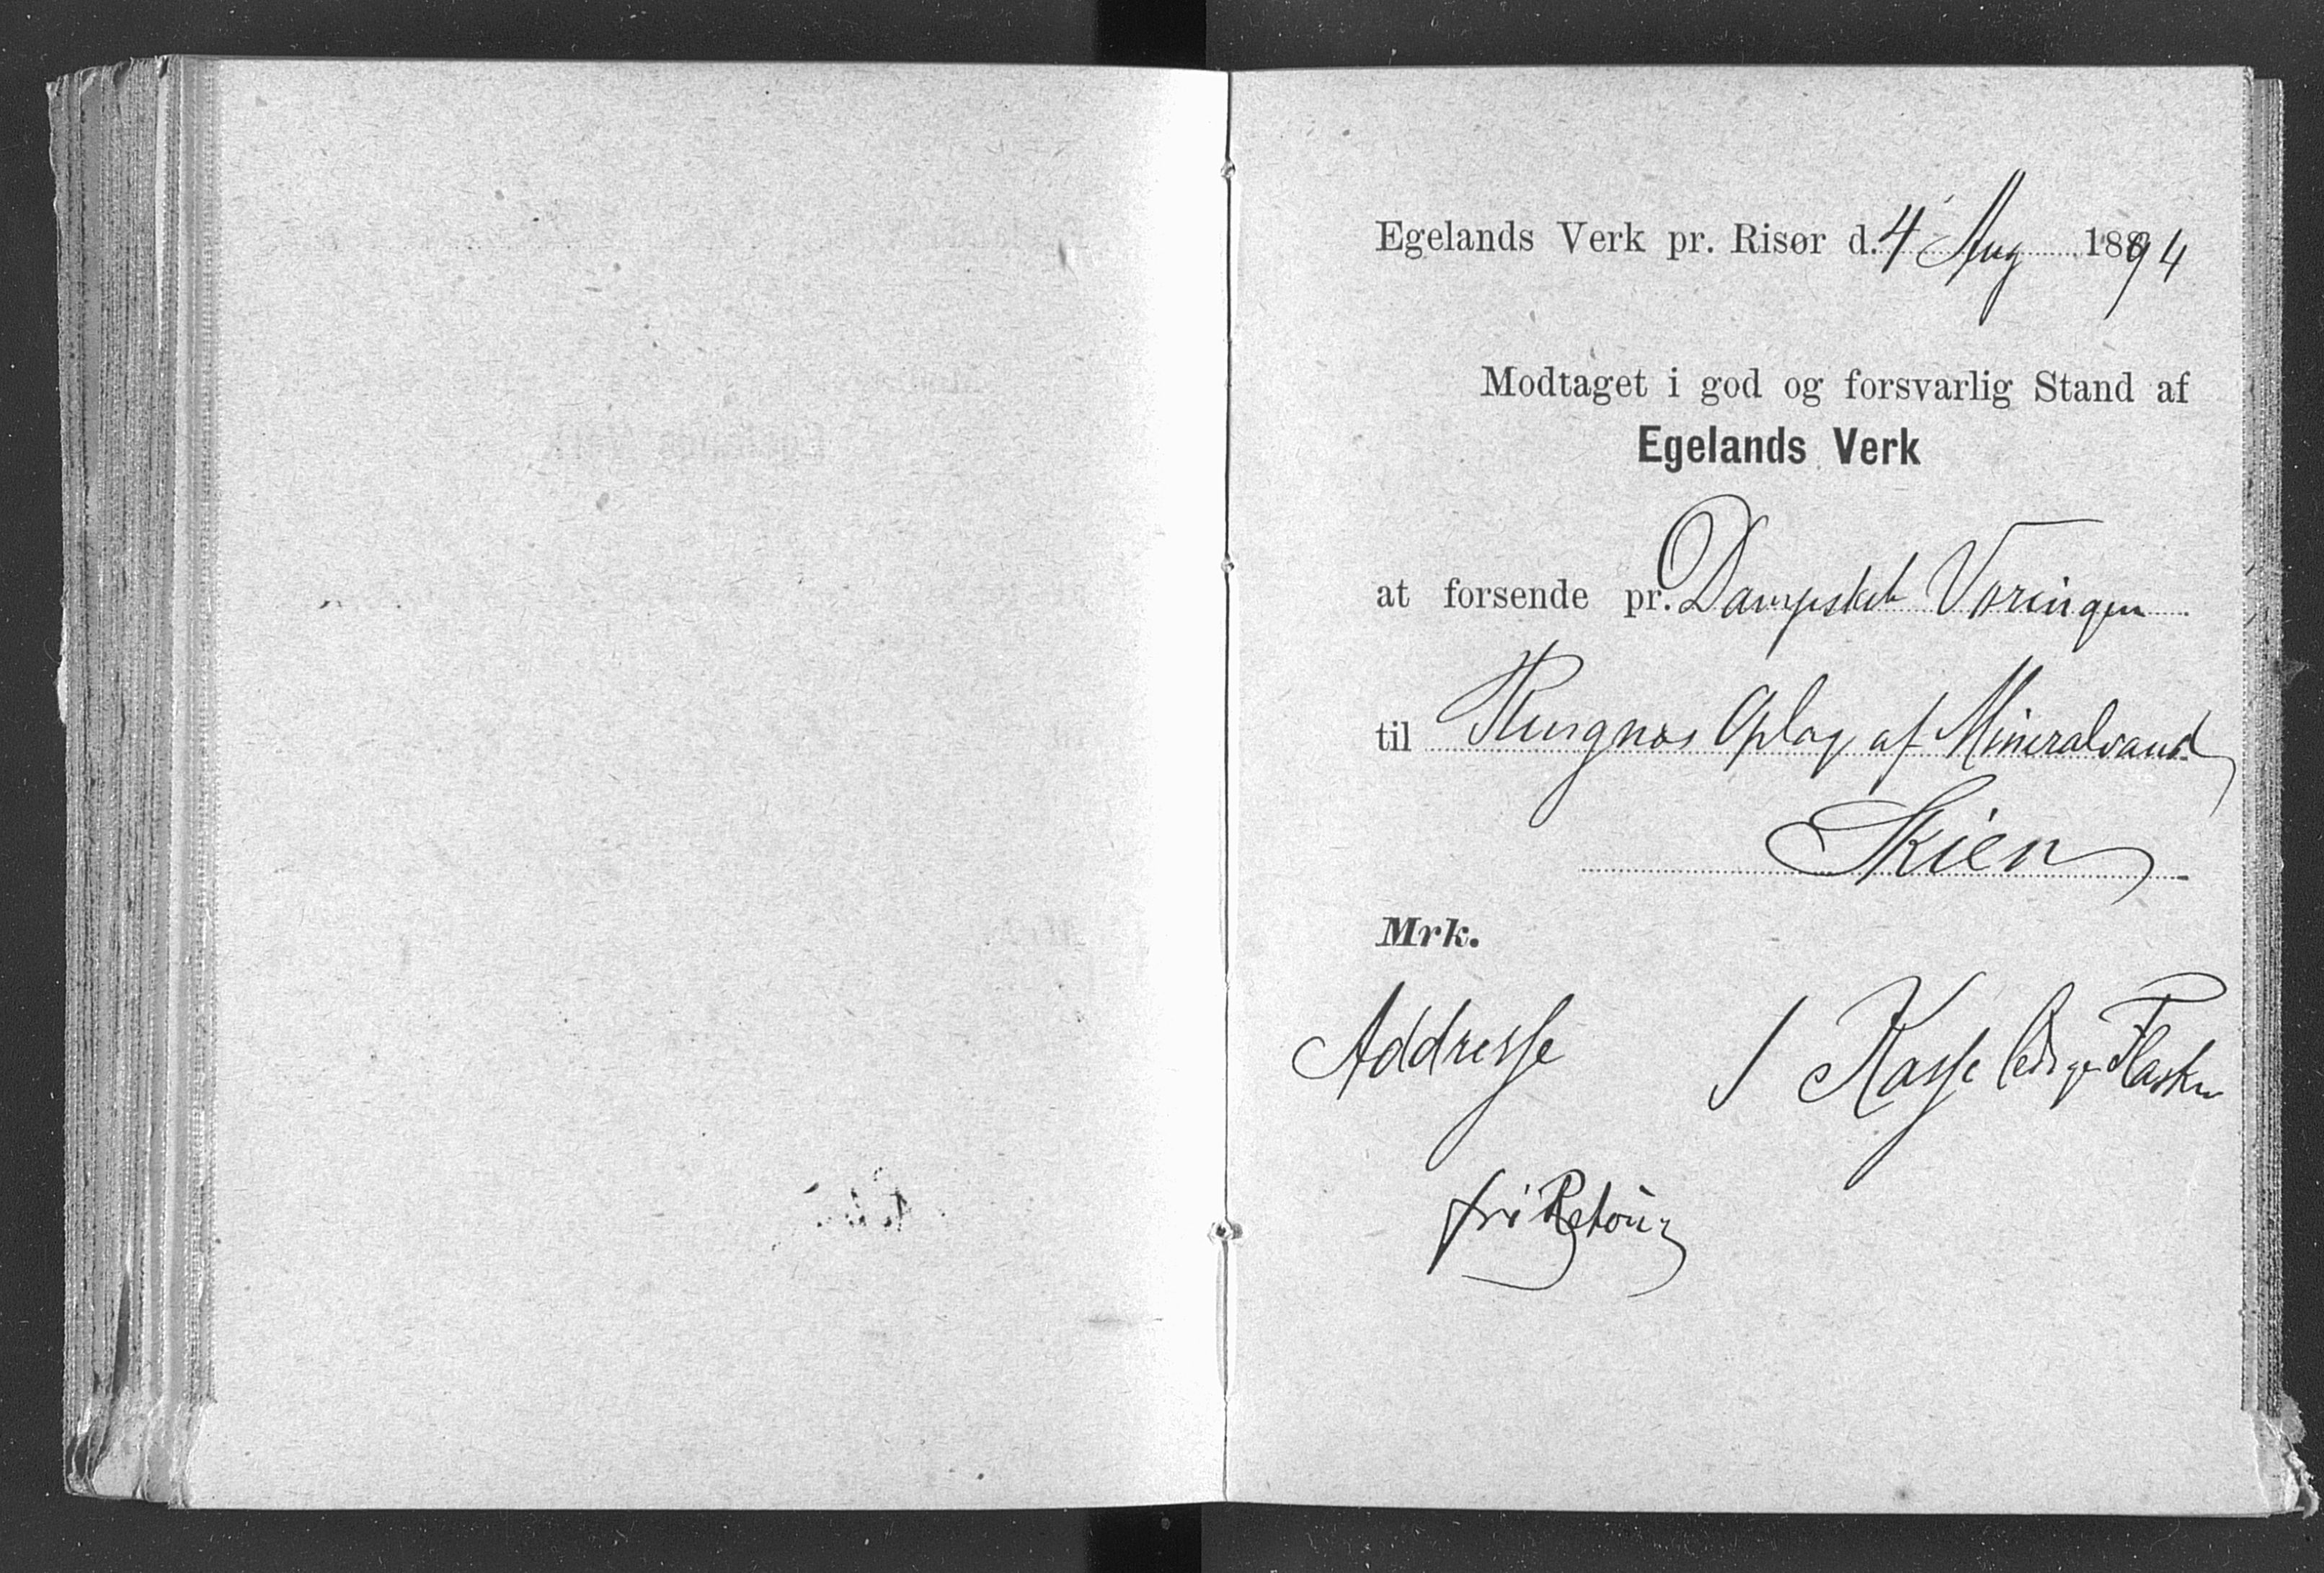 Egelands Verk pr. Risør d. 4 Aug 1894
Modtaget i god og forsvarlig Stand af
Egelands Verk
at forsende pr. Dampskib Vøringen
til Oplag af Mineralvand
Skien
Mrk.
Addresse 1 Kasse ledige Flasker
fri Retour